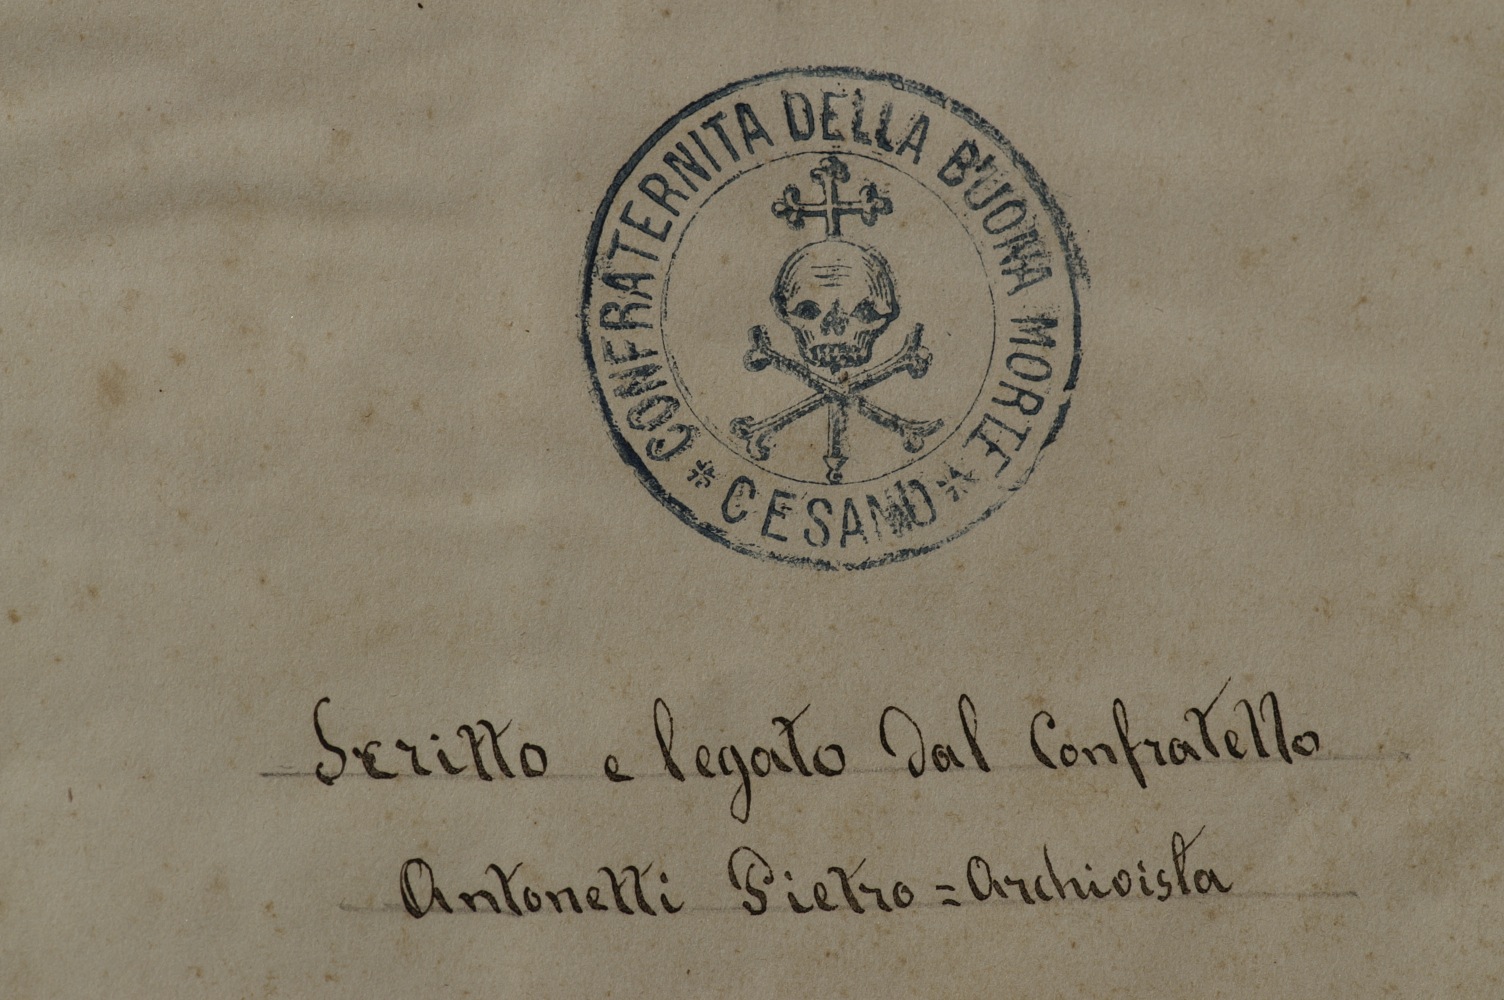 CONFRATERNITA DELLA BUONA MORTE
* CESANO *
Scritto e legato dal Confratello
Antonetti Pietro = Archivista